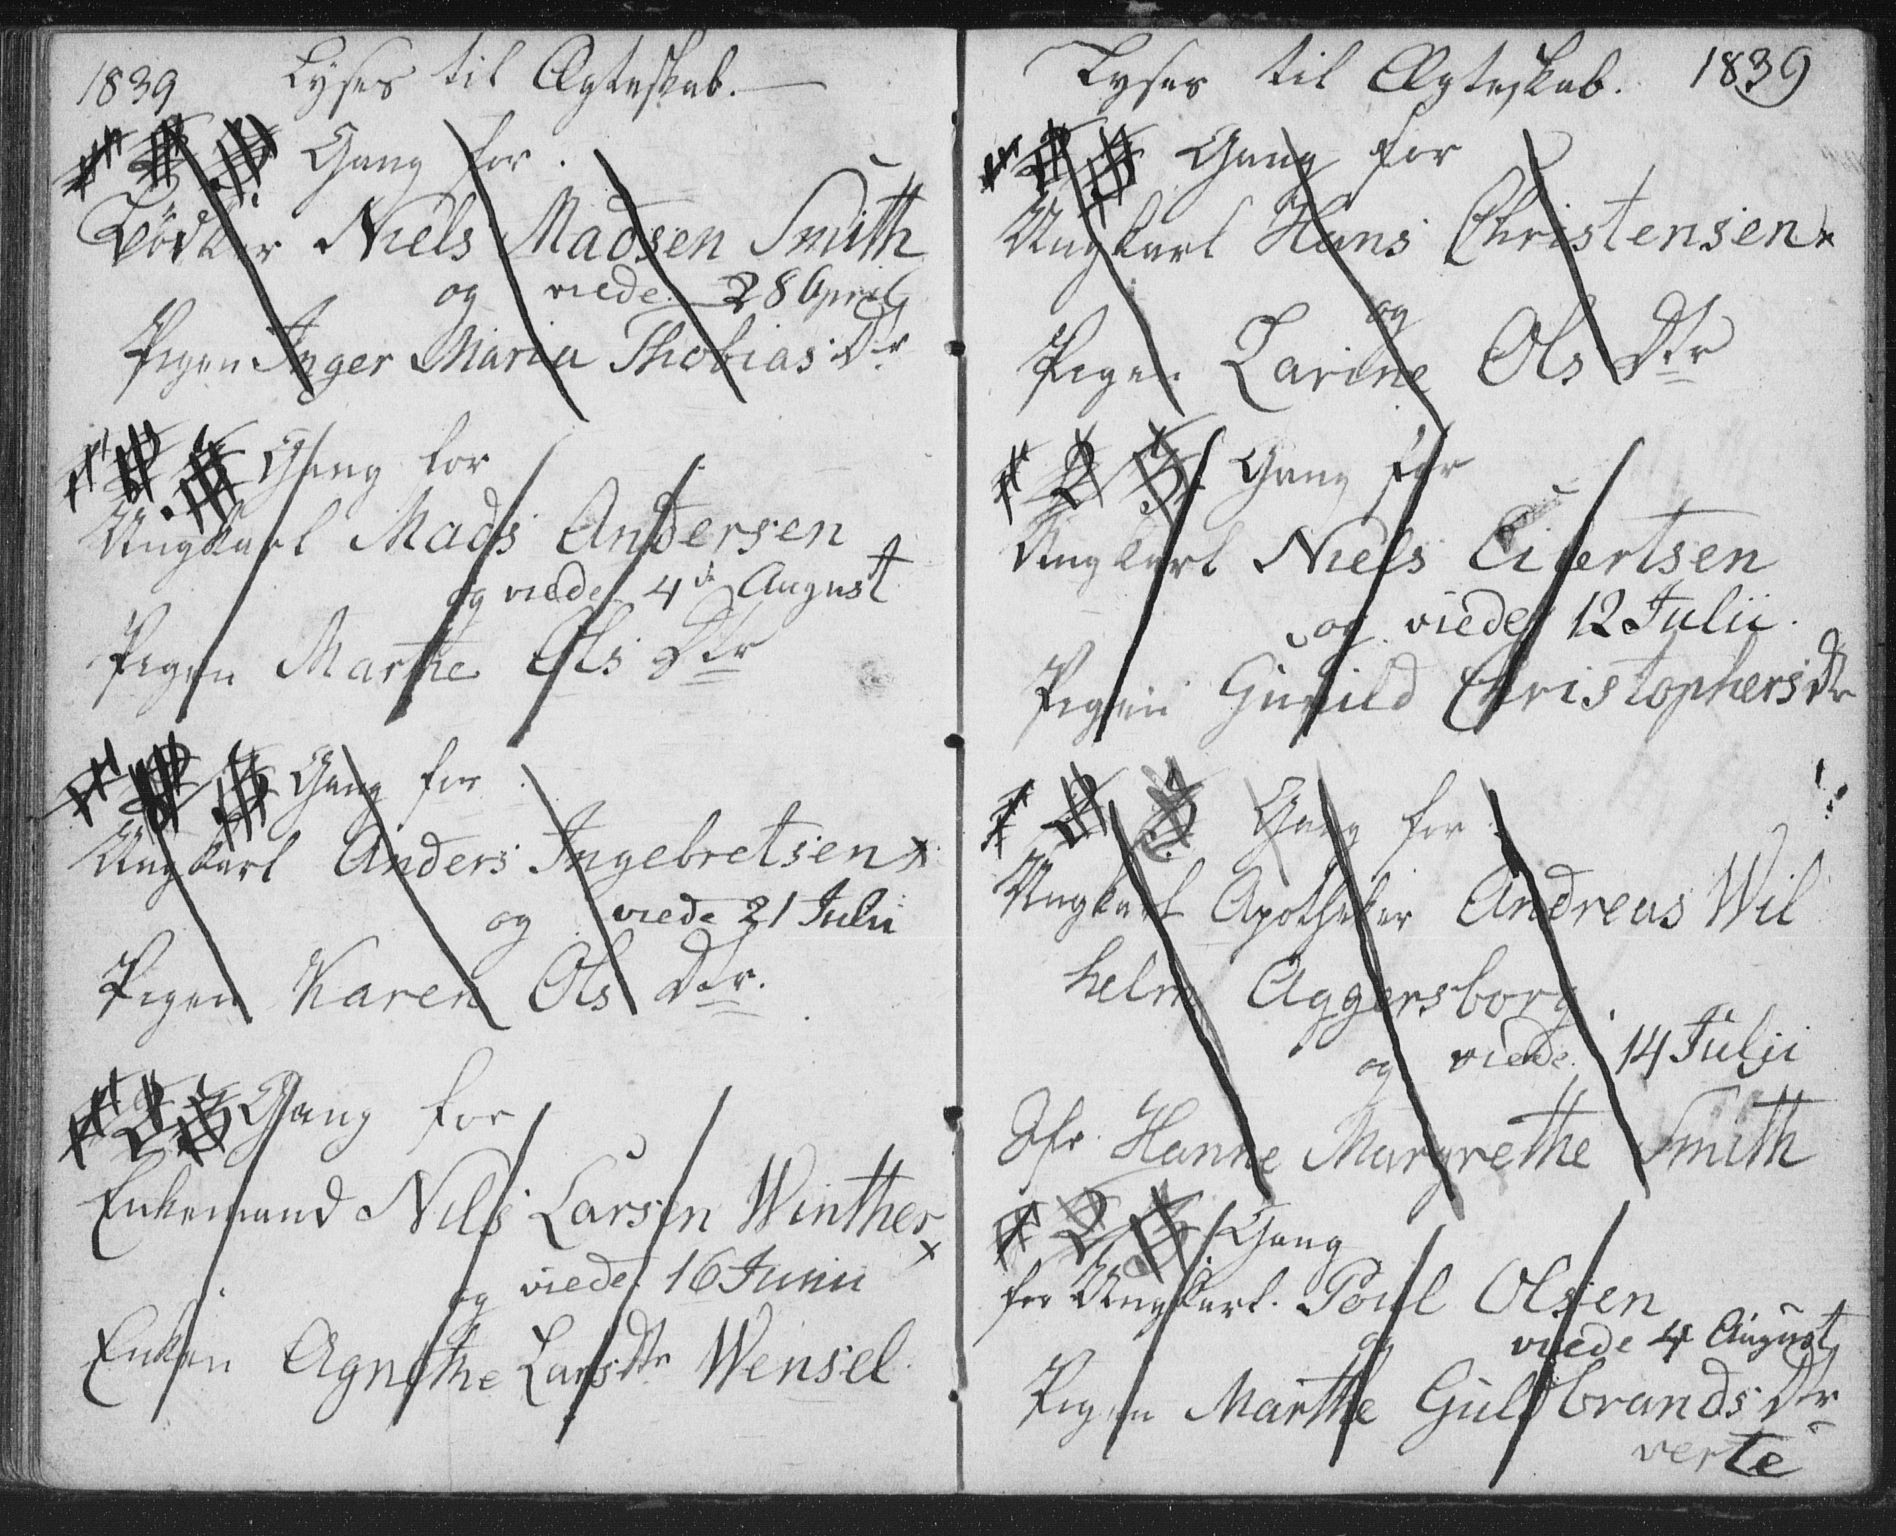 1839 Lyses til Ægteskab.
1 2 3. Gang for.
Bödker Niels Madsen Smith
og viede 28 April
Pigen Inger Maria Thobias Dr
1 2 3. Gang for
Ungkarl Mads Andersen
og viede 4de August
Pigen Marthe Ols Dtr
1 2 3 Gang for
Ungkarl Anders Ingebretsen x
og viede 21 Julii
Pigen Karen Ols Dtr.
1 2 3 Gang for
Enkemand Nils Larsen Winther x
og viede 16 Junii
Enken Agnethe Lars Dtr Wensel
Lyses til Ægteskab. 1839
1 2 3 Gang for
Ungkarl Hans Christensen x
og
Pigen Larine Ols Dtr
1 2 3. Gang for
Ungkarl Niels Eivertsen
og viede 12 Julii.
Pigen Gunild Christophers Dtr
1 2 3 Gang for
Ungkarl Apotheker Andreas Wil
helm Aggersborg
og viede 14 Julii
Jfr. Hanne Margrethe Smith
1 2 3 Gang
for Ungkarl. Poul Olsen
og viede 4 August
Pigen Marthe Guldbrands Dtr
verte